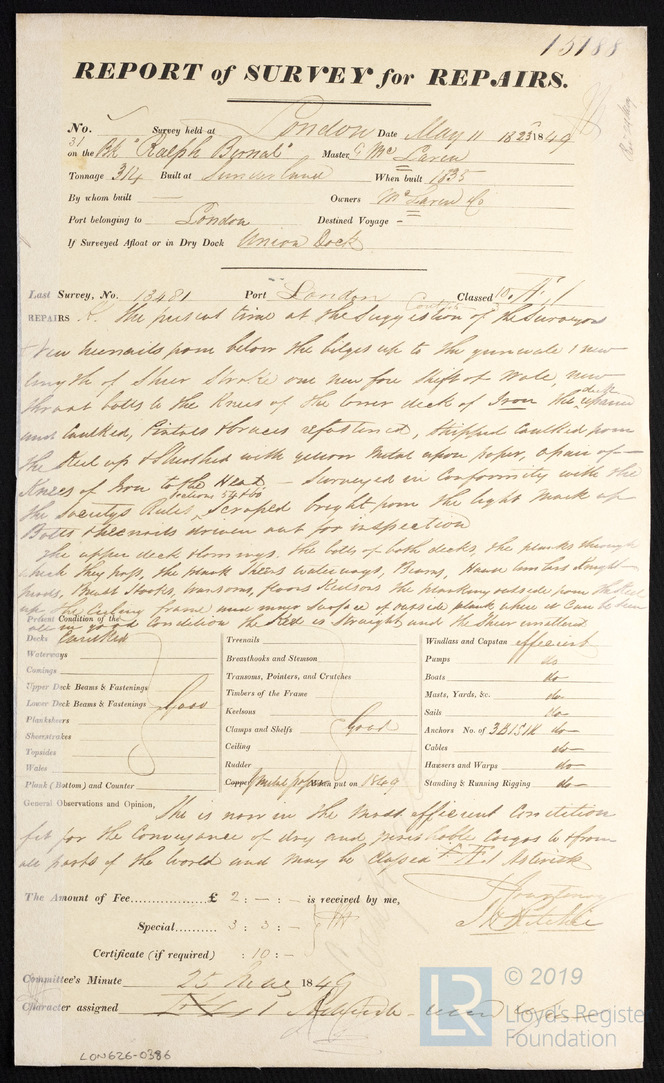 15188
REPORT of SURVEY for REPAIRS.
No. Survey held at London Date May 11 & 23 1849
31 on the Bk "Ralph Bernal" Master G McLaren
Tonnage 314 Built at Sunderland When built 1835
By whom built — Owners McLaren & Co
Port belonging to London Destined Voyage -
If Surveyed Afloat or in Dry Dock Union Dock
Last Survey, No. 13481 Port London Classed
REPAIRS the present time at the Suggestion of the Surveyors
New treenails from below the bilges up to the gunwale 1 new
length of Sheer Stroke one new fore Shift of Wale new
throat bolts to the Knees of the lower deck of Iron the deck repaired
and Caulked, Pintles & braces refastened, Stripped Caulked from
the Keel up & Sheathed with yellow Metal upon paper, a pair of
Knees of Iron to the Head — Surveyed in Conformity with the
the Societys Rules, Sections 54 & 60 Scraped bright from the light mark up
Bolts & treenails driven out for inspection
The upper deck & Comings, the bolts of both decks, the planks through
which they pass, the plank Sheers waterways, Beams, Hawse timbers Knight-
heads, Breast Hooks, transoms, floors Keelsons the planking outside from the Keel
up the Ceiling frame and inner Surface of outside plank where it can be seen
all in good condition the Keel is Straight and the Sheer unaltered
Present Condition of the
Decks Caulked
Waterways
Comings
Upper Deck Beams & Fastenings
Lower Deck Beams & Fastenings Good
Planksheers
Sheerstrakes
Topsides
Wales
Plank (Bottom) and Counter
Treenails
Breasthooks and Stemson
Transoms, Pointers, and Crutches
Timbers of the Frame
Keelsons
Clamps and Shelfs Good
Ceiling
Rudder
Copper y metal paper when put on 1849
Windlass and Capstan efficient
Pumps do
Boats do
Masts, Yards, &c. do
Sails do
Anchors No. of 3 B 1 S 1 K do
Cables do
Hawsers and Warps do
Standing & Running Rigging do
General Observations and Opinion, She is now in the most efficient Condition
fit for the Conveyance of dry and perishable Cargos to & from
all parts of the World and may be Classed Æ 1 Asterisk
The Amount of Fee............... £ 2 : — : — is received by me,
Special.......... 3 : 3 : -
Certificate (if required) : 10 : -
Committee's Minute 25 May 1849
Character assigned Æ 1 Asterisk
© 2019
LR
Lloyd's Register
Foundation
LON626-0386